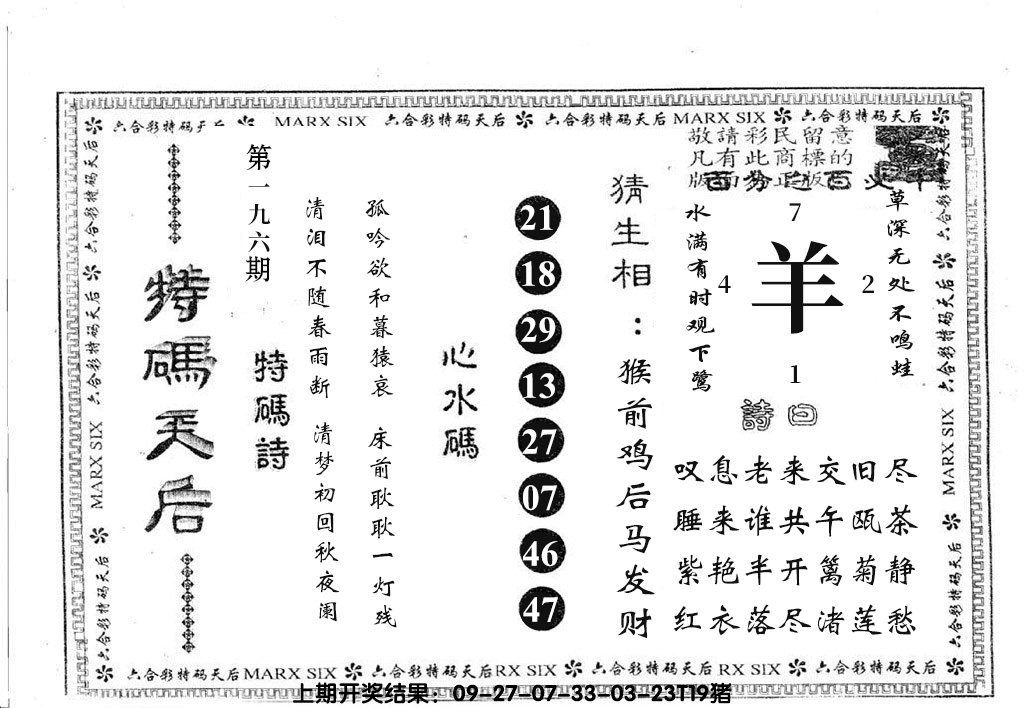 六合彩特码天后 MARX SIX 六合彩特码天后 六合彩特码天后 MARX SIX 六合彩特码天后
敬請彩民留意
凡有此商標的
版面为正版
特碼天后
第一九六期
特碼詩
清泪不随春雨断 清梦初回秋夜阑
孤吟欲和暮猿哀 床前耿耿一灯残
心水碼
21
18
29
13
27
07
46
47
猜生相：猴前鸡后马发财
水满有时观下鹭
草深无处不鸣蛙
7
4 羊 2
1
詩曰
叹息老来交旧尽
睡来谁共午瓯茶
紫艳半开篱菊静
红衣落尽渚莲愁
六合彩特码天后 MARX SIX 六合彩特码天后
六合彩特码天后 六合彩特码天后 MARX SIX
六合彩特码天后MARX SIX 六合彩特码天后RX SIX 六合彩特码天后 RX SIX 六合彩特码天后
上期开奖结果：09-27-07-33-03-23T19猪